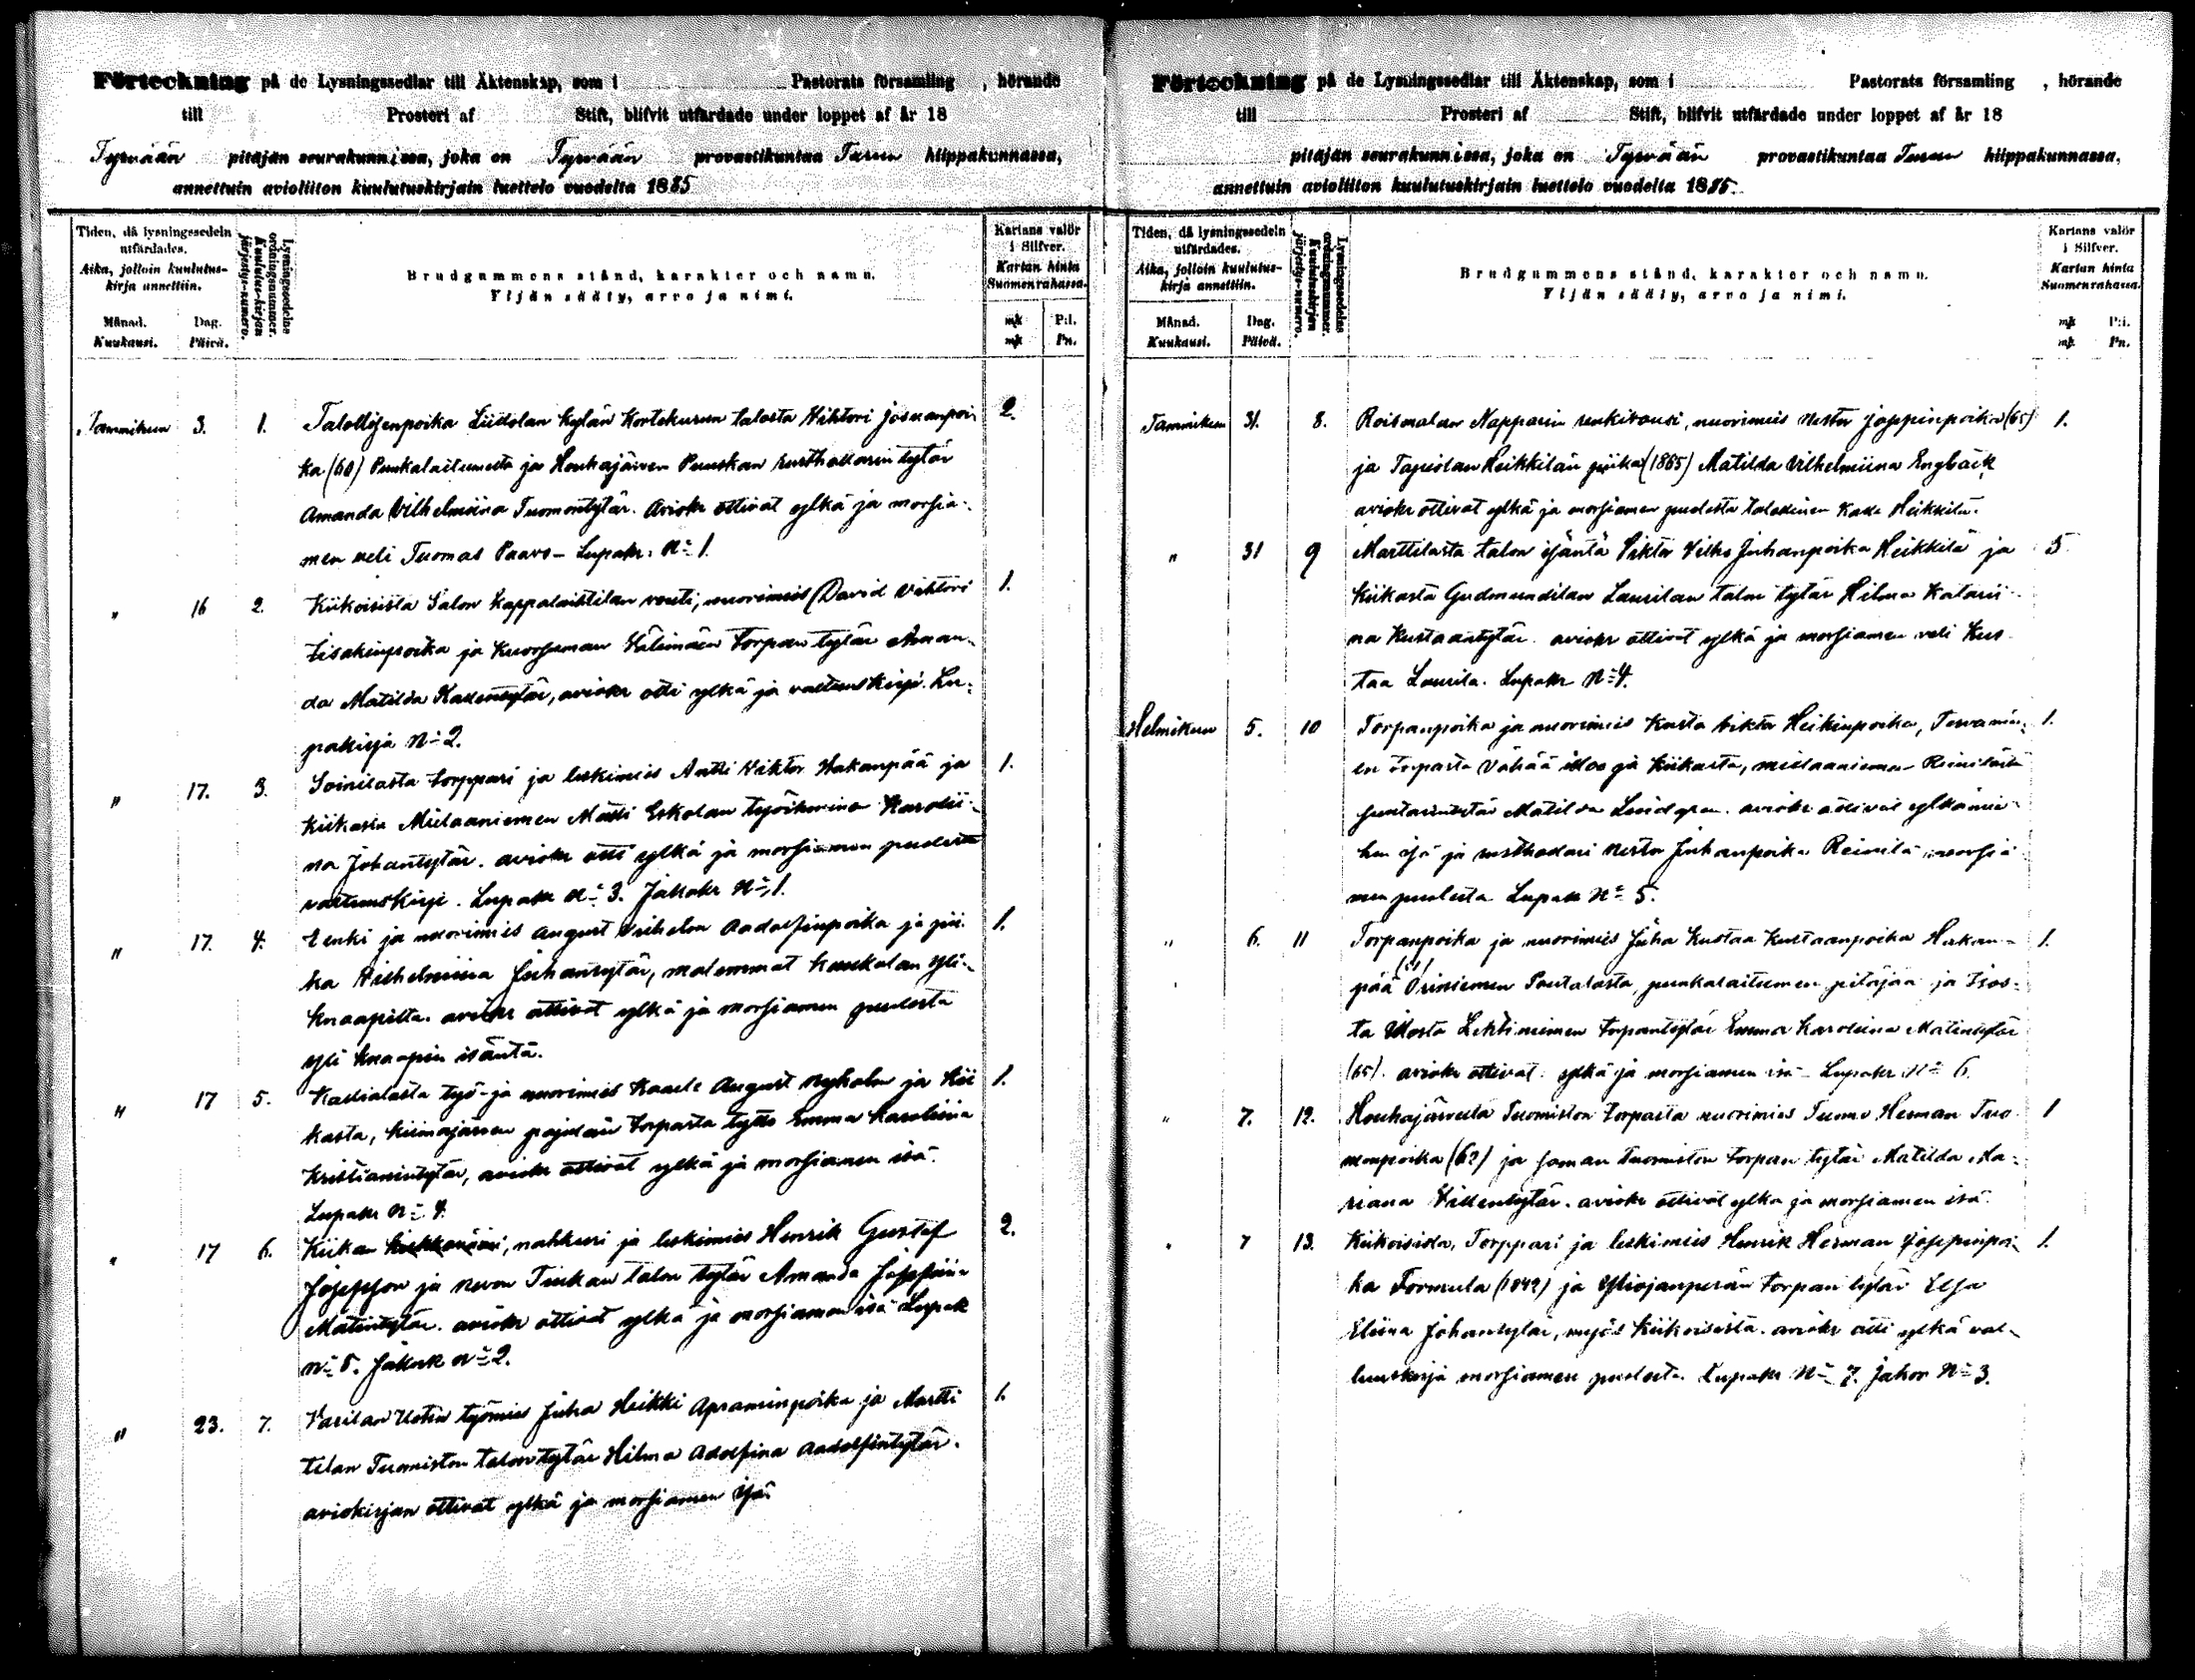 Förteckning på de Lysningssedlar till Äktenskap, som i Pastorats församling , hörande
till Prosteri af Stift, blifvit utfärdade under loppet af år 18
Tyrvään pitäjän seurakunnissa, joka on Tyrvään provastikuntaa Turun hiippakunnassa,
annettuin avioliiton kuulutuskirjain luettelo vuodelta 1885
Tiden, då lysningssedeln utfärdades.
Aika, jolloin kuulutuskirja annettiin.
Månad. Dag.
Kuukausi. Päivä.
Lysningssedelns ordningsnummer.
Kuulutus-kirjan järjestys-numero.
Brudgummens stånd, karakter och namn.
Yljän sääty, arvo ja nimi.
Kartans valör i Silfver.
Kartan hinta Suomenrahassa.
mk P:i.
mk Pn.
Tammikuun 3. 1. Talollisenpoika Liedolan kylän Kortekurun talosta Viktori Josuanpoi 2.
ka (60) Punkalaitumesta ja Houkajärven Punskan rusthollarin tytär
Amanda Vilhelmiina Tuomontytär. Aviokr ottivat ylkä ja morsia-
men veli Tuomas Paavo - Lupakr. N:o 1.
" 16 2. Kiikoisista Salon Kappalaistilan vouti, nuorimies David Vihtori 1.
Iisakinpoika ja Kuorsuman Välimäen torpan tytär Aman-
da Matilda Kallentytär, aviokr otti ylkä ja valtuuskirja. Lu-
pakirja N:o 2.
" 17. 3. Soinilasta torppari ja leskimies Antti Viktor Hakanpää ja 1.
Kiikasta Mielaaniemen Matti Eskolan työikoninen Karolii-
na Johantytär. aviokr otti ylkä ja morsiamen puolesta
valtuuskirje. Lupakr N:o 3. Jakokr N:o 1.
" 17. 4. Renki ja nuorimies August Vilhelm Aadolfinpoika ja pii- 1.
ka Vilhelmiina Juhantytär, molemmat Kaukolan Yli-
knaapilta. aviokr ottivat ylkä ja morsiamen puolesta
yli knaapin isäntä.
" 17 5. Kallialasta työ- ja nuorimies Kaarle August Nyholm ja Kii 1.
kasta, Kiimajärven pajalan torpasta tyttö Emma Karoliina
Kristianintytär, aviokr ottivat ylkä ja morsiamen isä.
Lupakr N:o 4.
" 17 6. Kiikan , nahkuri ja leskimies Henrik Gustaf 2.
Josefsson ja Novon Tiukan talon tytär Amanda Josefiina
Matintytär. aviokr ottivat ylkä ja morsiamen isä Lupak
N:o 5. Jakok N:o 2.
" 23. 7. Varilan Uotin työmies Juha Heikki Apraminpoika ja Martti 1.
tilan Tuomiston talon tytär Hilma Adolfina Aadolfintytär.
aviokirjan ottivat ylkä ja morsiamen isä.
Förteckning på de Lysningssedlar till Äktenskap, som i Pastorats församling , hörande
till Prosteri af Stift, blifvit utfärdade under loppet af år 18
pitäjän seurakunnissa, joka on Tyrvään provastikuntaa Turun hiippakunnassa,
annettuin avioliiton kuulutuskirjain luettelo vuodelta 1885.
Tiden, då lysningssedeln utfärdades.
Aika, jolloin kuulutuskirja annettiin.
Månad. Dag.
Kuukausi. Päivä.
Lysningssedelns ordningsnummer.
Kuulutuskirjan järjestys-numero.
Brudgummens stånd, karakter och namn.
Yljän sääty, arvo ja nimi.
Kartans valör i Silfver.
Kartan hinta Suomenrahassa.
mk P:i.
mk Pn.
Tammikuun 31. 8. Roismalan Napparin renkivouti, nuorimies Nestor Joppinpoika (65) 1.
ja Tapiolan Heikkilän piika (1865) Matilda Vilhelmiina Engbäck
aviokr ottivat ylkä ja morsiamen puolesta talollinen Kalle Heikkilä.
" 31 9 Marttilasta talon isäntä Viktor Vilho Juhanpoika Heikkilä ja 5
Kiikasta Gudmundilan Laurilan talon tytär Hilma Katarii-
na Kustaantytär. aviokr ottivat ylkä ja morsiamen veli Kus-
taa Laurila. Lupakr N:o 4.
Helmikuun 5. 10 Torpanpoika ja nuorimies Kusta Viktor Heikinpoika, 1.
en torpasta Vähää Illoo ja Kiikasta, mielaaniemen Reinilästä
Matilda Lindgren. aviokr ottivat ylkämie-
hen isä ja rusthollari Nestor Juhanpoika Reinilä morsia-
men puolesta Lupakr N:o 5.
" 6. 11 Torpanpoika ja nuorimies Juha Kustaa Kustaanpoika Hakan- 1.
pää Oriniemen Poutalasta, punkalaitumen pitäjää ja Isos-
ta Illosta Lehtiniemen torpantytär Emma Karoliina Matintytär
(65). aviokr ottivat ylkä ja morsiamen isä - Lupakr N:o 6.
" 7. 12. Houhajärveltä Tuomiston torpasta nuorimies Tuomo Herman Tuo- 1
monpoika (62) ja saman Tuomiston torpan tytär Matilda Ma-
riana Villentytär. aviokr ottivat ylkä ja morsiamen isä.
" 7 13. Kiikoisista, Torppari ja leskimies Henrik Herman Joseppinpoi- 1.
ka Formula (1842) ja Yliojanperän torpan tytär Elsa
Eliina Johantytär, myös Kiikoisista. aviokr otti ylkä val-
tuuskirja morsiamen puolesta. Lupakr N:o 7. Jakor N:o 3.